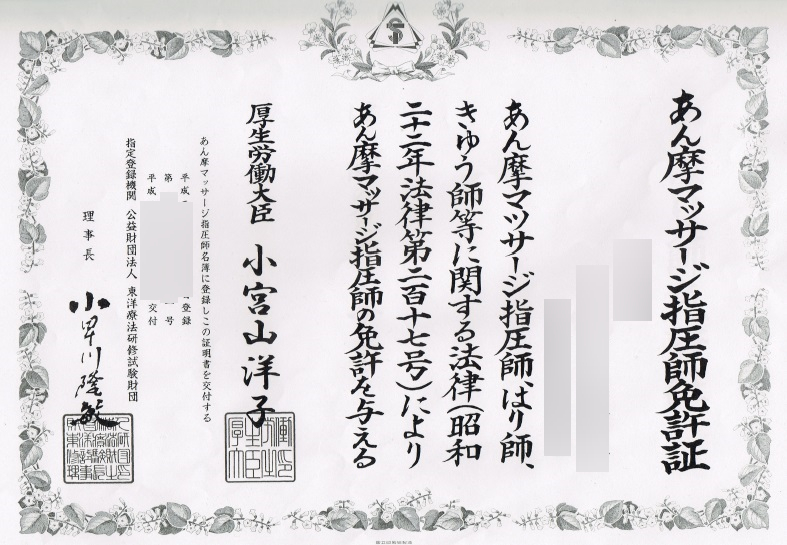 あん摩マッサージ指圧師免許証
あん摩マツサージ指圧師、はり師、
きゆう師等に関する法律（昭和
二十二年法律第二百十七号）により
あん摩マッサージ指圧師の免許を与える
厚生労働大臣 小宮山洋子
あん摩マッサージ指圧師名簿に登録しこの証明書を交付する
平成 登録
第 号
平成 交付
指定登録機関 公益財団法人 東洋療法研修試験財団
理事長 小早川隆敏